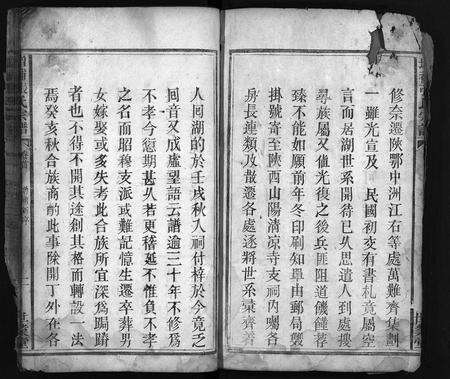 修奈遷陝鄂中洲江右等處萬難齊集劃
一雖光宣及　民國初叐有書札竟屬空
言而居湖世系開待已久思遣人到處搜
尋族屬又值光復之後兵匪阻道饑饉薦
臻不能如願前年冬印刷知單由郵局製
掛號寄至陝西山陽清凉寺支祠內囑各
房長連類及散遷各處逐將世系彙齊齊
人回湖的於壬戌秋入祠付梓於今竟乏
回音又成虛望語云譜逾三十年不修為
不孝今愆期甚久若更稽延不惟負不孝
之名而昭穆支派或難記憶生遷卒葬男
女嫁娶或多失考此合族所宜深為跼蹐
者也不得不開其途剏其格而轉設一法
焉癸亥秋合族商酌此事除開丁外在各